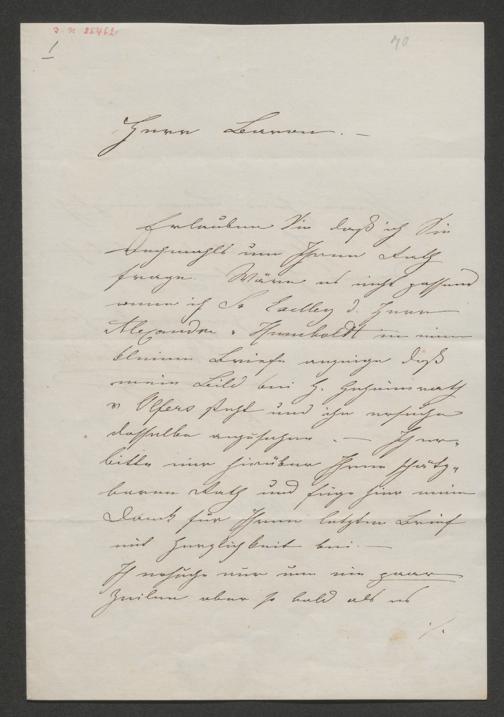 I. N. 25462
70
1
Herr Baron. –
Erlauben Sie daß ich Sie
nochmahls um Ihren Rath
frage. Wäre es nicht passend
wenn ich Sr Excellenz d. Herrn
Alexander v Humboldt in einem
kleinen Briefe anzeige daß
mein Bild bei H. Geheimrath
v Olfers steht und ihn ersuche
dasselbe anzusehen. – Ich er-
bitte mir hierüber Ihren schätz-
baren Rath und füge hier meinen
Dank für Ihren letzten Brief
mit Herzlichkeit bei. –
Ich ersuche nur um ein paar
Zeilen aber so bald als es
./.